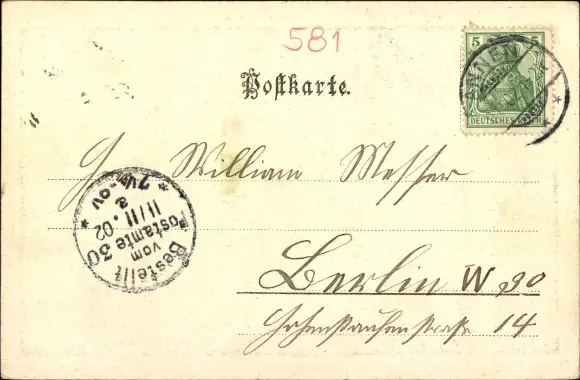 581
5 5
Postkarte.
DEUTSCHES REICH
Hr William Messer
Bestellt
vom
Postamte 30
11/11.02
7½-8V
Berlin W 30
Hohenstaufenstraße 14